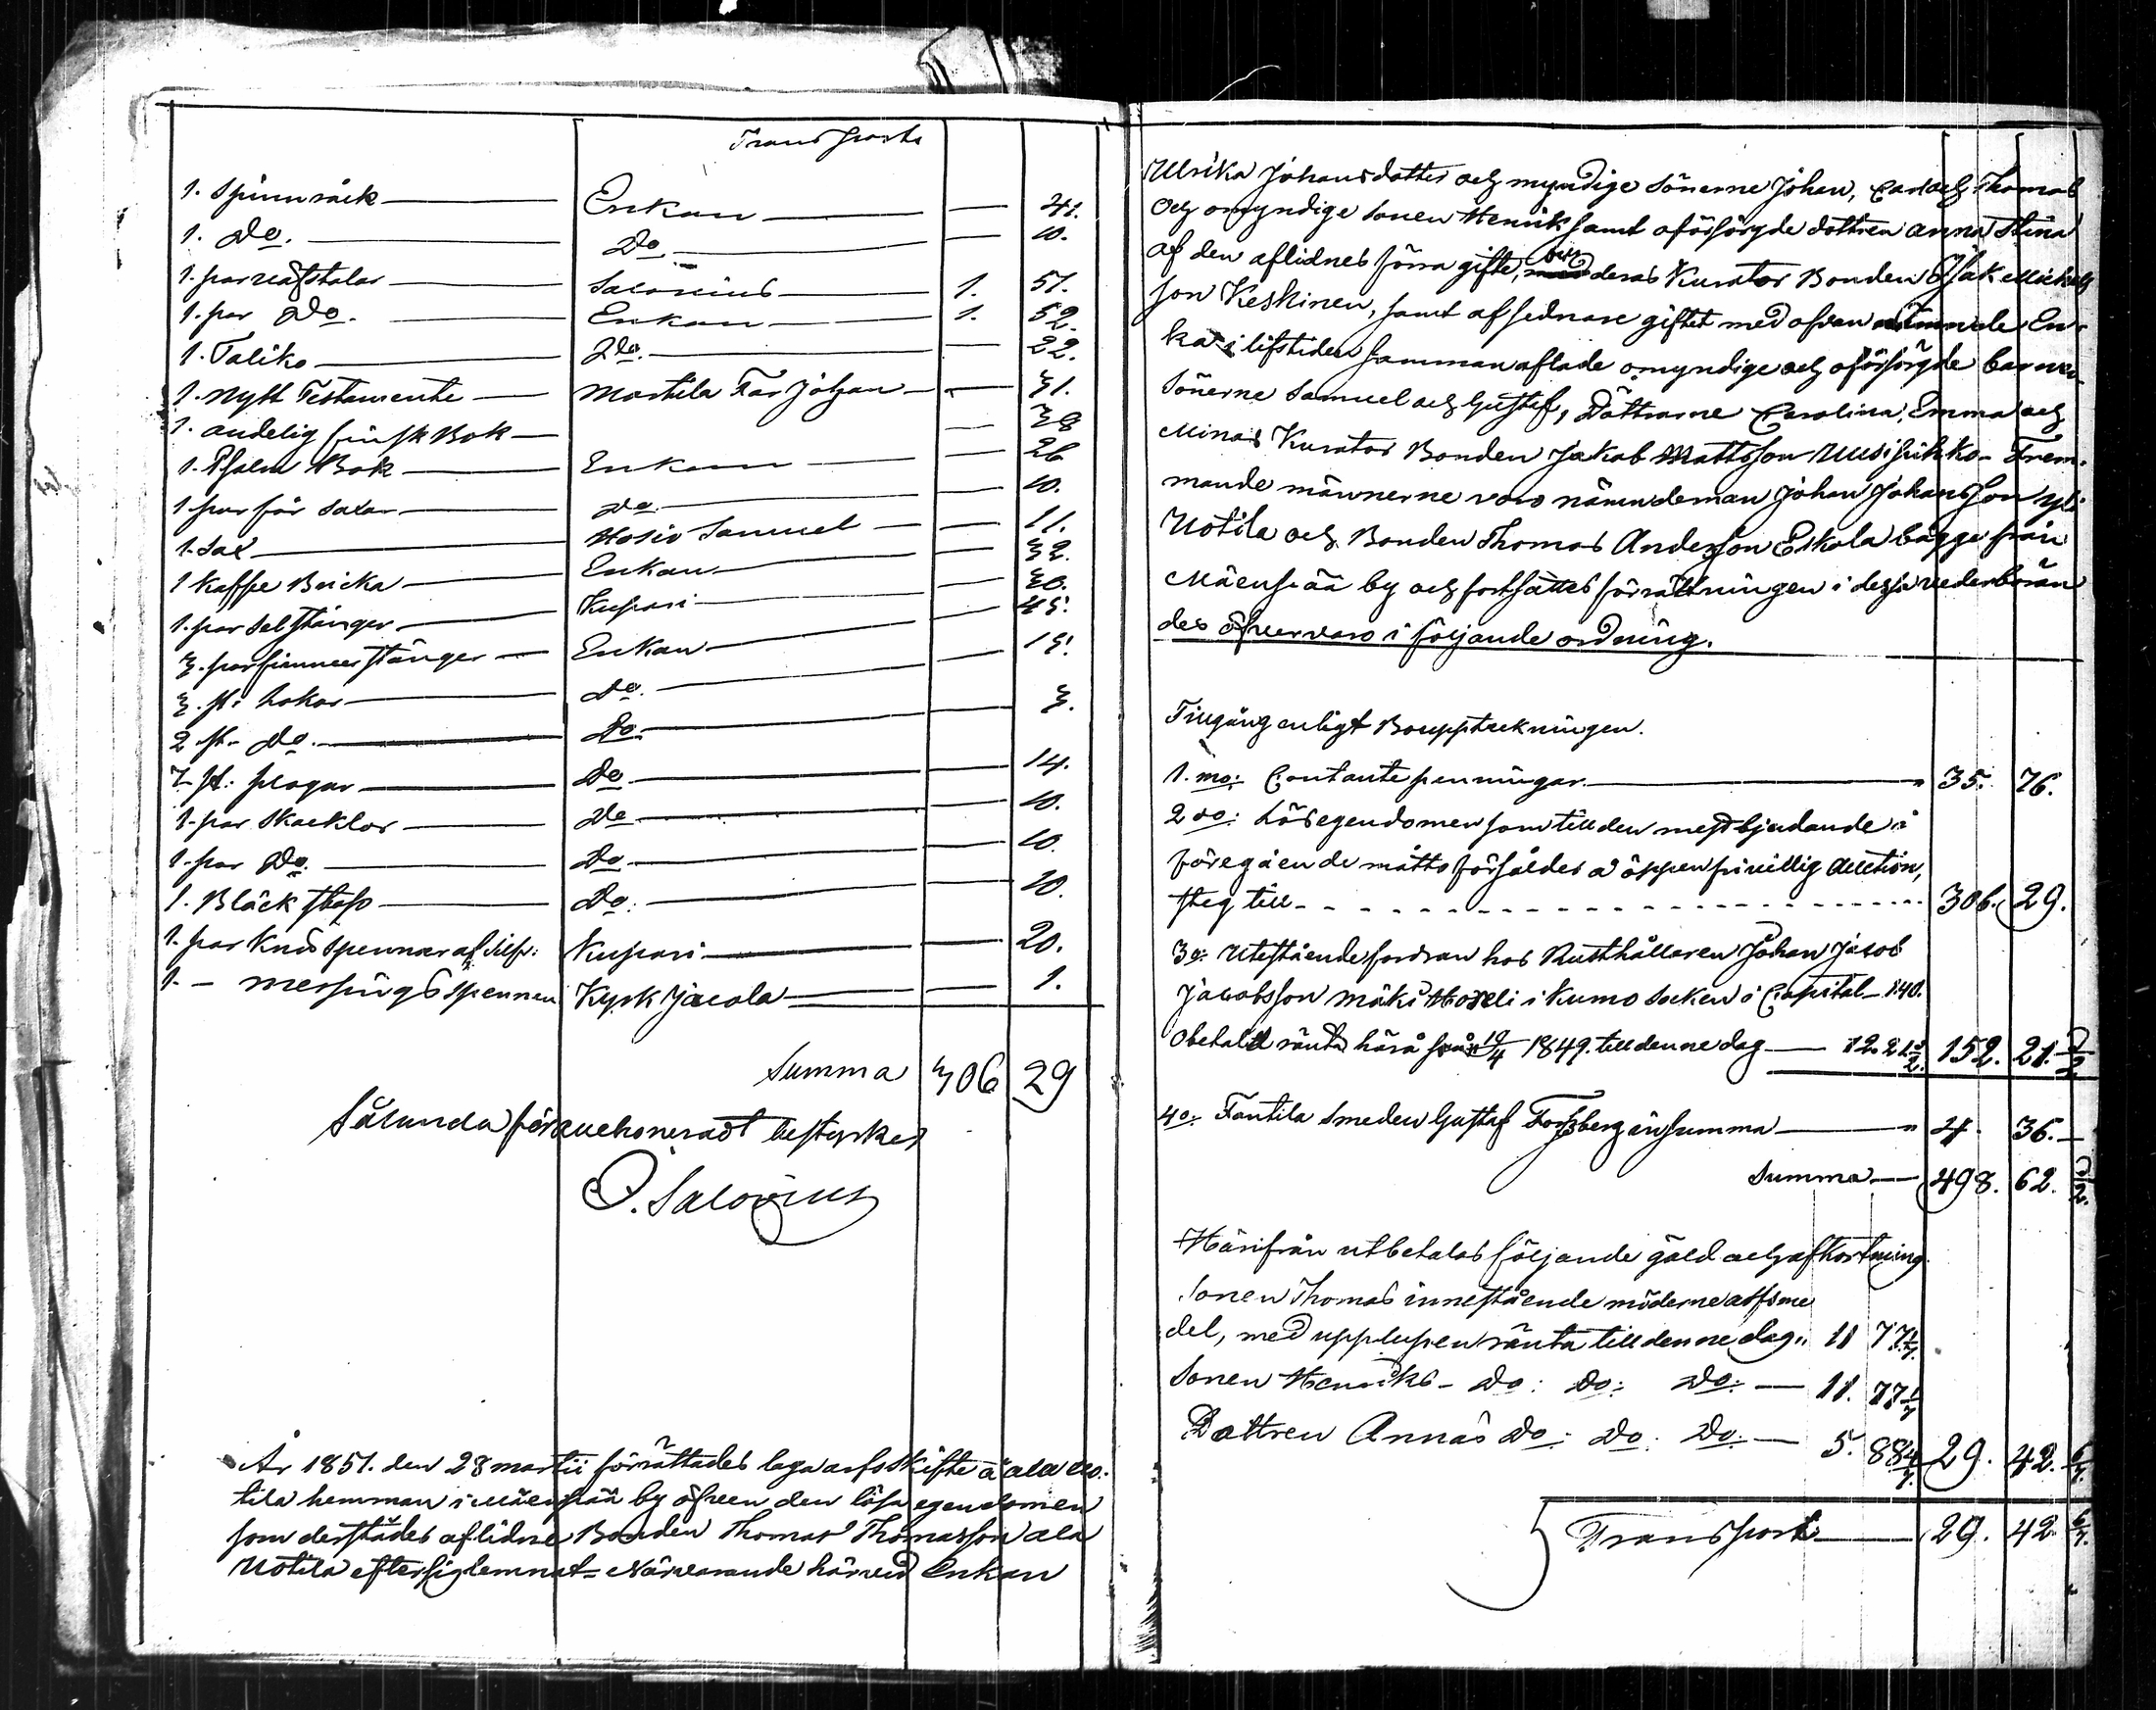 Transport
1. Spinnråck — Enkan — — 41.
1. Do. — Do. — — 10.
1. par räfstolar — Salovius — 1. 51.
1. par Do. — Enkan — 1. 52.
1. Taliko — Do. — — 22.
1. Nytt Testamente — Mortila Far Johan — — 31.
1. andelig finsk Bok — — 38
1. Psalm Bok — Enkan — — 26
1 par får saxar — Do. — — 10.
1. Sax — Hosio Samuel — — 11.
1 Kaffe Bricka — Enkan — — 32.
1. par Selstänger — Kupari — — 30.
3. par stänger — Enkan — — 45.
3. st: hokar — Do. — — 15.
2 st. Do. — Do. — — 3.
7 st: plogar — Do — — 14.
1. par Skacklor — Do — — 10.
1. par Do. — Do — — 10.
1. Bläck — Do. — — 10.
1. par Knäspennar af silfv: Kupari — — 20.
1. – messings spennen Kyrk Jacola — — 1.
Summa 306 29
Sålunda förauctioneradt bestyrker
Salovius
År 1851. den 28 martii förrättades laga arfs skifte å ala Uo-
tila hemman i Mäenpää by öfver den lösa egendomen
som derstädes aflidne Bonden Thomas Thomasson ala
Uotila efter sig lemnat – Närvarande härvid Enkan
Ulrika Johansdotter och myndige sönerne Johan, Carl och Thomas
och omyndige sonen Henrik samt oförsörgde dottren Anna Stina
af den aflidnes förra gifte, deras Kurator Bonden Isak Michels
son Keskinen, samt af sednare giftet med ofvan nämnde En-
ka i lifstiden sammanaflade omyndige och oförsörgde barnen
Sönerne Samuel och Gustaf, Döttrarne Carolina, Emma och
Minas Kurator Bonden Jakob Mattsson Uusipihko – Frem-
mande männerne voro nämndeman Johan Johansson yli
Uotila och Bonden Thomas Andersson Eskola bägge från
Mäenpää by och fortsattes förrättningen i dess vederbören
des öfvervaro i följande ordning.
Tillgång enligt Bouppteckningen.
1. mo: Contante penningar — " 35. 76.
2 do: Lösegendomen som till den mestbjudande i
föregående måtto försåldes å öppen frivillig Auction,
steg till - - - 306. 29.
3o: Utestående fordran hos Rusthållaren Johan Jacob
Jacobsson Mäki i Kumo Socken i Capital — 140.
Obetald ränta härå från 19/4 1849. till denne dag — 12. 21 1/2. 152. 21. 1/2
4o: Fantila Smeden Gustaf Forsberg en summa — " 4. 36. —
Summa — 498. 62. 1/2.
Härifrån utbetalas följande gäld och afkortning.
Sonen Thomas innestående möderne arfs me
del, med upplupen ränta till denne dag " 11 77 1/7.
Sonen Henriks – Do: Do: Do: — 11. 77 1/7
Dottren Annas Do: Do: Do: — 5. 88 4/7. 29. 42. 6/7.
Transport — 29. 42 6/7.